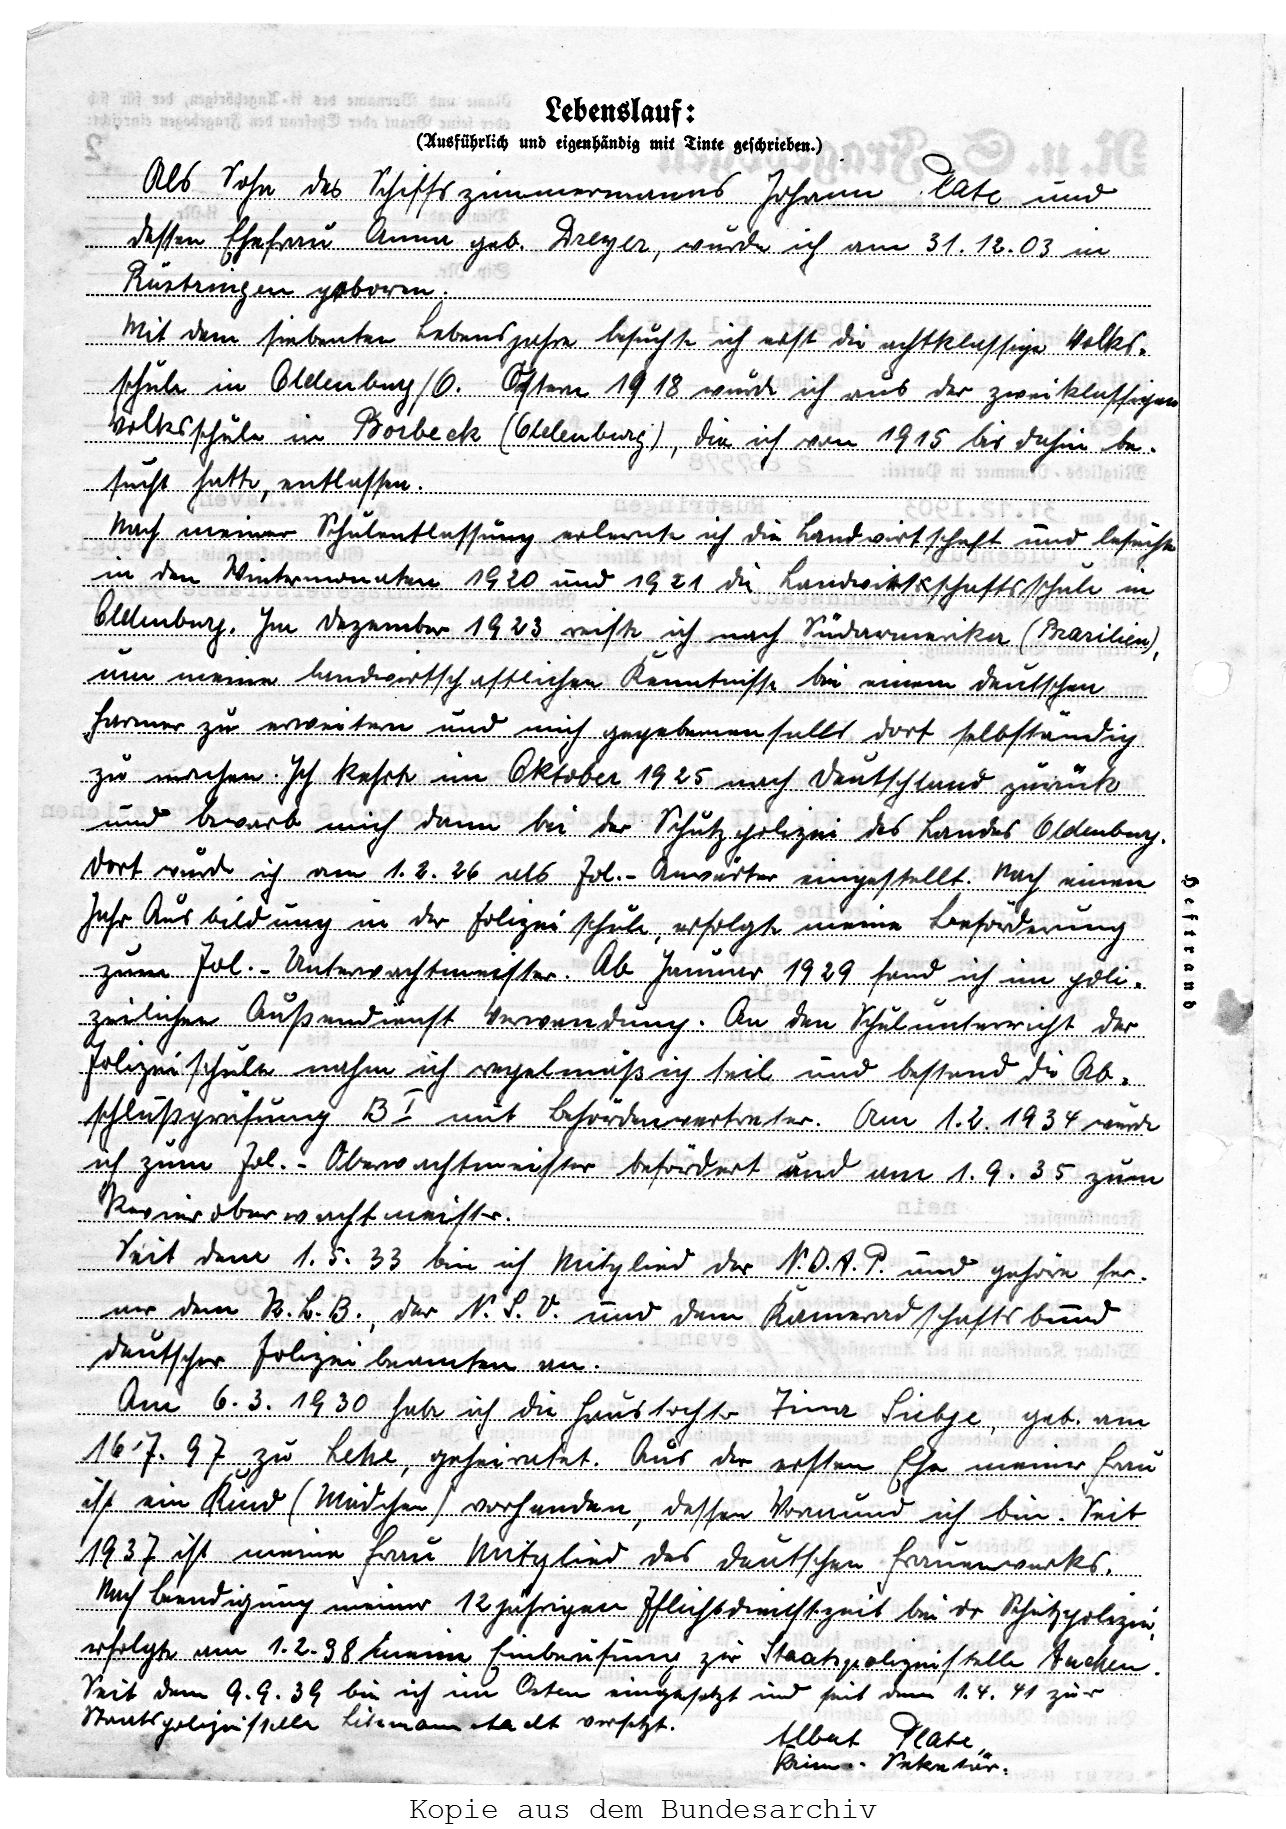 Lebenslauf:
(Ausführlich und eigenhändig mit Tinte geschrieben.)
Als Sohn des Schiffszimmermanns Johann Plate und
dessen Ehefrau Anna geb. Dreyer, wurde ich am 31.12.03 in
Rüstringen geboren.
Mit dem siebenten Lebensjahre besuchte ich erst die achtklassige Volks-
schule in Oldenburg/O. Ostern 1918 wurde ich aus der zweiklassigen
Volksschule in Borbeck (Oldenburg), die ich von 1915 bis dahin be-
sucht hatte, entlassen.
Nach meiner Schulentlassung erlernte ich die Landwirtschaft und besuchte
in den Wintermonaten 1920 und 1921 die Landwirtschaftsschule in
Oldenburg. Im Dezember 1923 reiste ich nach Südamerika (Brasilien),
um meine landwirtschaftlichen Kenntnisse bei einem deutschen
Farmer zu erweitern und mich gegebenenfalls dort selbständig
zu machen. Ich kehrte im Oktober 1925 nach Deutschland zurück
und bewarb mich dann bei der Schutzpolizei des Landes Oldenburg.
Dort wurde ich am 1.2.26 als Pol.-Anwärter eingestellt. Nach einem
Jahr Ausbildung in der Polizeischule, erfolgte meine Beförderung
zum Pol.-Unterwachtmeister. Ab Januar 1929 fand ich im poli-
zeilichen Außendienst Verwendung. An den Schulunterricht der
Polizeischule nahm ich regelmäßig teil und bestand die Ab-
schlußprüfung B I mit Behördenvertreter. Am 1.2.1934 wurde
ich zum Pol.-Oberwachtmeister befördert und am 1.9.35 zum
Revieroberwachtmeister.
Seit dem 1.5.33 bin ich Mitglied der N.D.A.P. und gehöre fer-
ner dem R.L.B., der N.S.V. und dem Kameradschaftsbund
deutscher Polizeibeamten an.
Am 6.3.1930 habe ich die Haustochter Tina Siebje, geb. am
16.7.97 zu Lehe, geheiratet. Aus der ersten Ehe meiner Frau
ist ein Kind (Mädchen) vorhanden, dessen Vormund ich bin. Seit
1937 ist meine Frau Mitglied des deutschen Frauenwerks.
Nach Beendigung meiner 12jährigen Pflichtdienstzeit bei der Schutzpolizei,
erfolgte am 1.2.38 meine Einberufung zur Staatspolizeistelle Aachen.
Seit dem 9.9.39 bin ich im Osten eingesetzt und seit dem 1.4.41 zur
Staatspolizeistelle Litzmannstadt versetzt.
Albert Plate,
Krim.-Sekretär.
Heftrand
Kopie aus dem Bundesarchiv